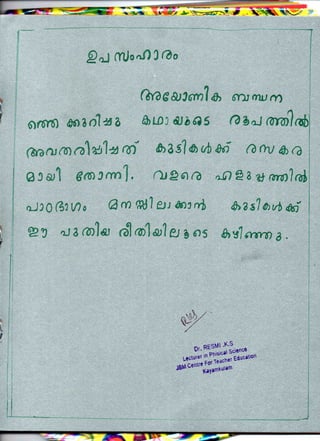 ഉപസംഹാരം
അയോണിക ബന്ധന
ത്തെക്കുറിച്ചു കഥായുടെ രൂപത്തിൽ
അവതരിപ്പിച്ചത് കുട്ടികൾക്ക് രസകര
മായി തോന്നി. വളരെ എളുപ്പത്തിൽ
പാഠഭാഗം മനസ്സിലാക്കാൻ കുട്ടികൾക്ക്
ഈ പുതിയ രീതിയിലൂടെ കഴിഞ്ഞു.
Dr. RESMI .K.S
Lecturer in Phisical Science
JBM Centre For Teacher Education
Kayamkulam